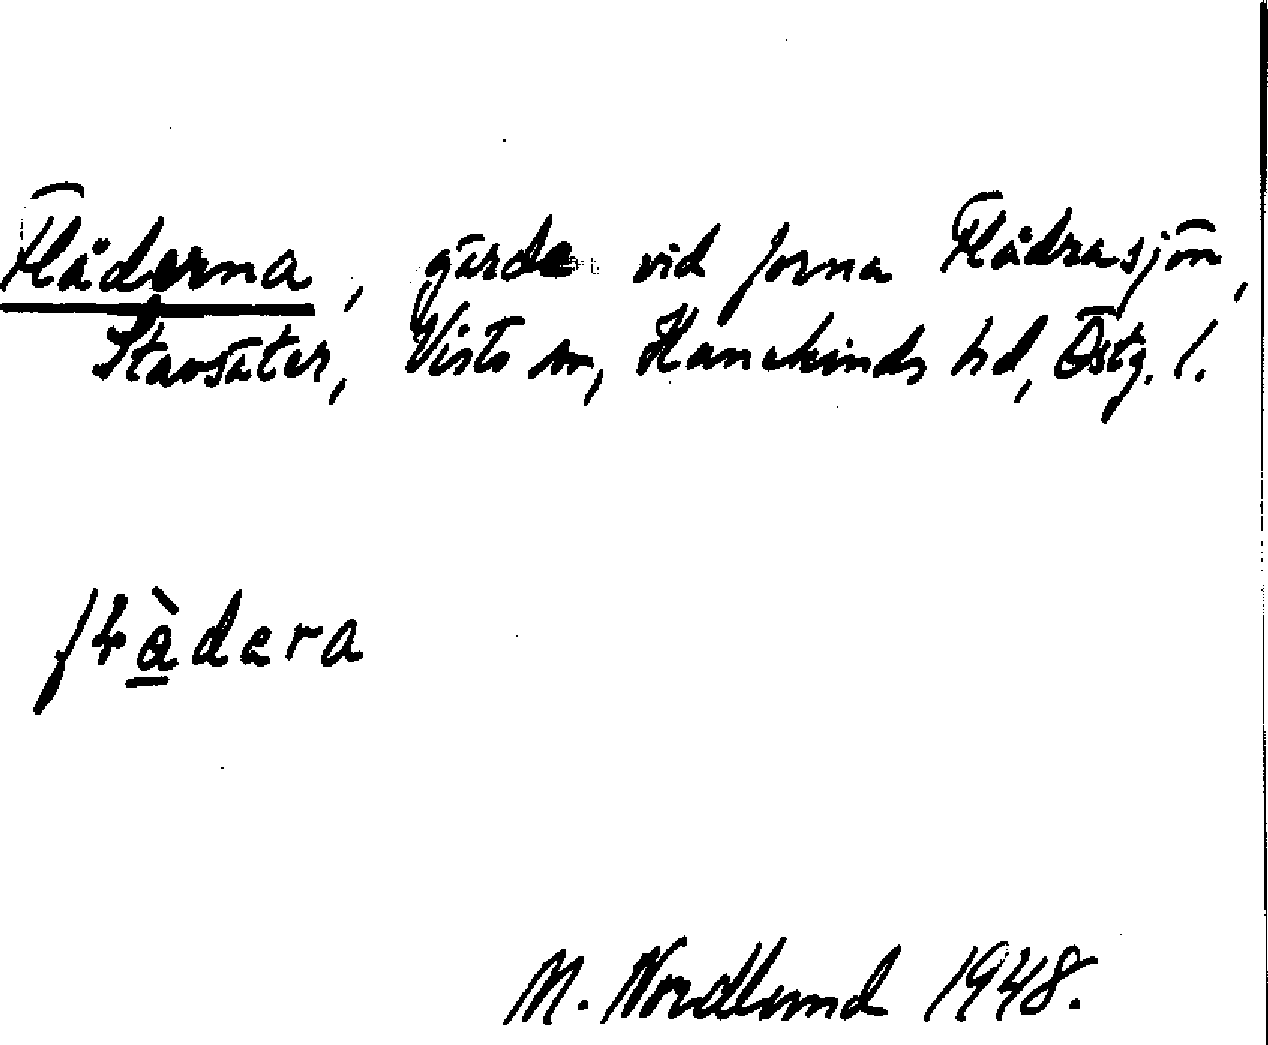 Flåderna, gärde vid forna Flådrasjön,
Stavsäter, Vists sn, Hanekinds hd, Östg. l.
M. Nordlund 1948.